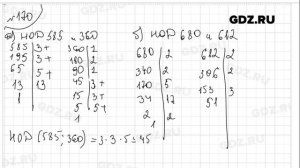 №170
а) НОД 585 и 360
б) НОД 680 и 612
585 | 3+ 360 | 2
195 | 3+ 180 | 2
65 | 5+ 90 | 2
13 | 13 45 | 3+
1 15 | 3+
5 | 5+
1
680 | 2 612 | 2
340 | 2 306 | 2
170 | 5 153
34 | 17 51
2 | 2
НОД (585; 360) = 3·3·5=45
GDZ.RU
GDZ.RU